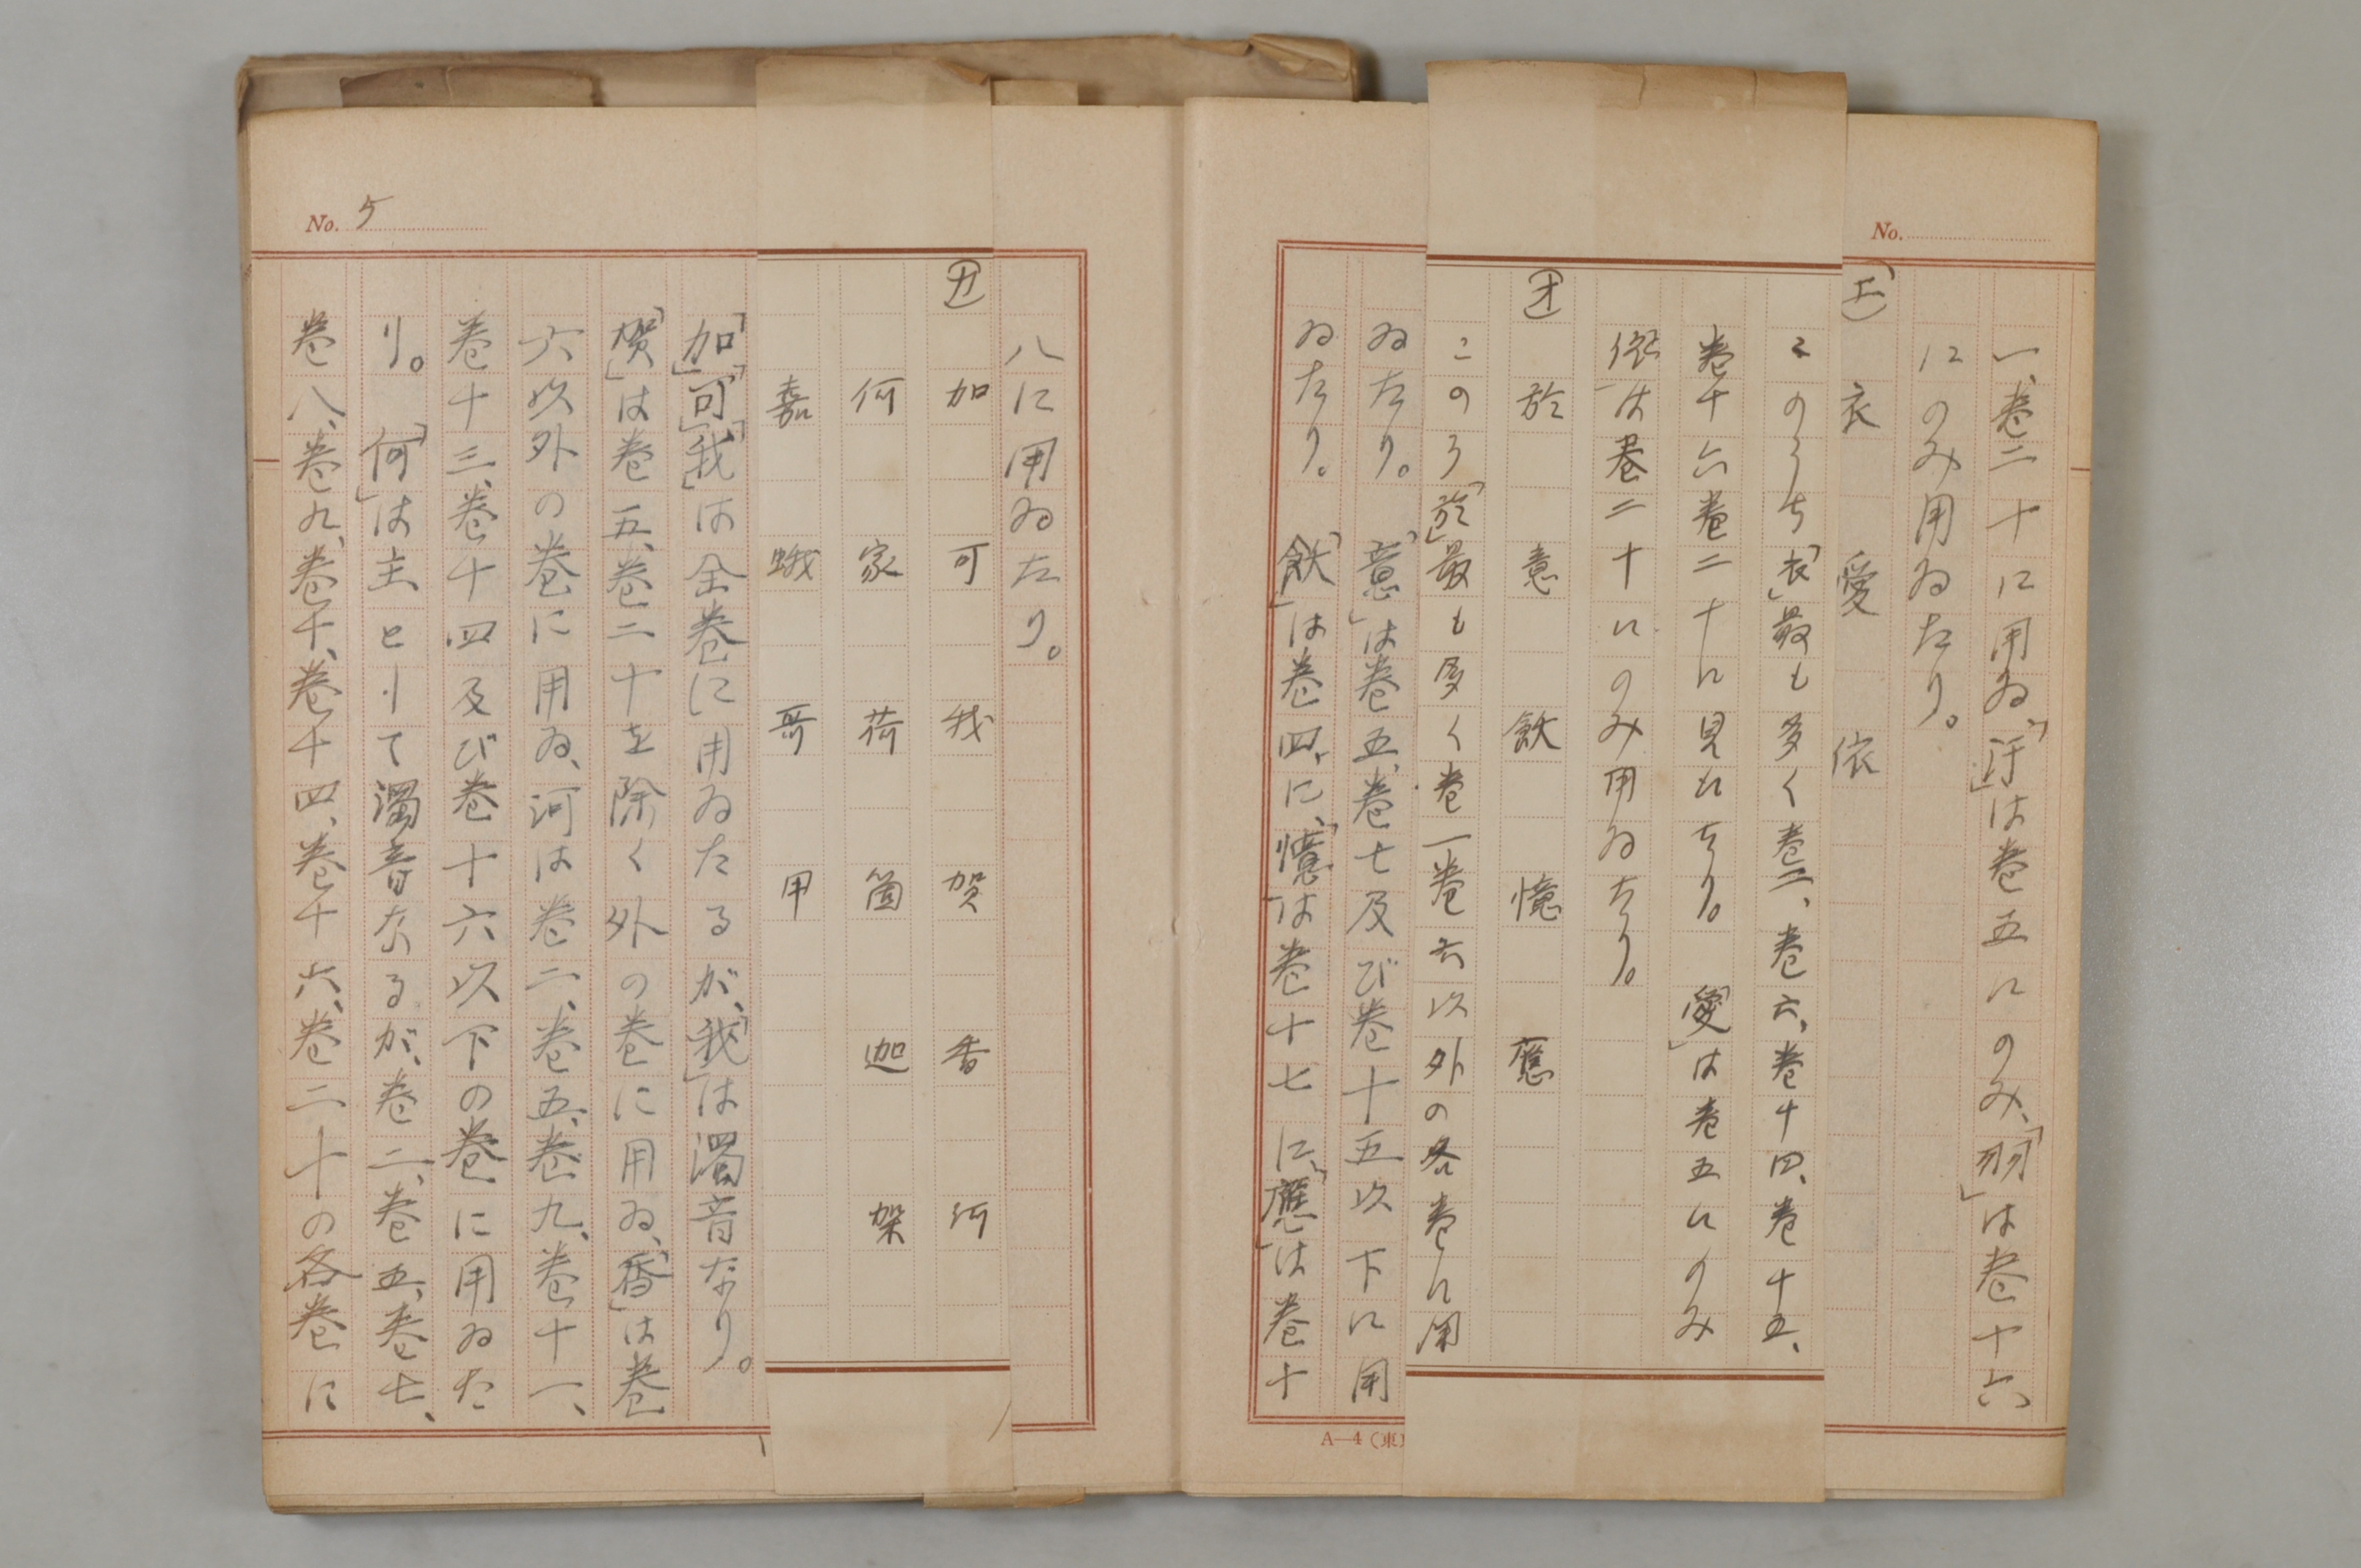 No.
一、巻二十に用ゐ、「汙」は巻五にのみ、「羽」は巻十六
にのみ用ゐたり。
(エ) 衣 愛 依
このうち「衣」最も多く巻二、巻六、巻十四、巻十五、
巻十六巻二十に見ゑたり。「愛」は巻五にのみ
依」は巻二十にのみ用ゐたり。
(オ) 於 意 飲 憶 應
このう「於」最も多く巻一巻六以外の各巻に用
ゐたり。「意」は巻五、巻七及び巻十五以下に用
ゐたり。「飲」は巻四、に、「憶」は巻十七に、「應」は巻十
A—4(東)
八に用ゐたり。
(カ) 加 可 我 賀 香 河
何 家 荷 箇 迦 架
嘉 蛾 哥 甲
「加」「可」「我」は全巻に用ゐたるが、「我」は濁音なり。
「賀」は巻五、巻二十を除く外の巻に用ゐ、「香」は巻
六以外の巻に用ゐ、河は巻二、巻五、巻九、巻十一、
巻十三、巻十四及び巻十六以下の巻に用ゐた
り。「何」は主として濁音なるが、巻二、巻五、巻七、
巻八、巻九、巻十、巻十四、巻十六、巻二十の各巻に
No. 5